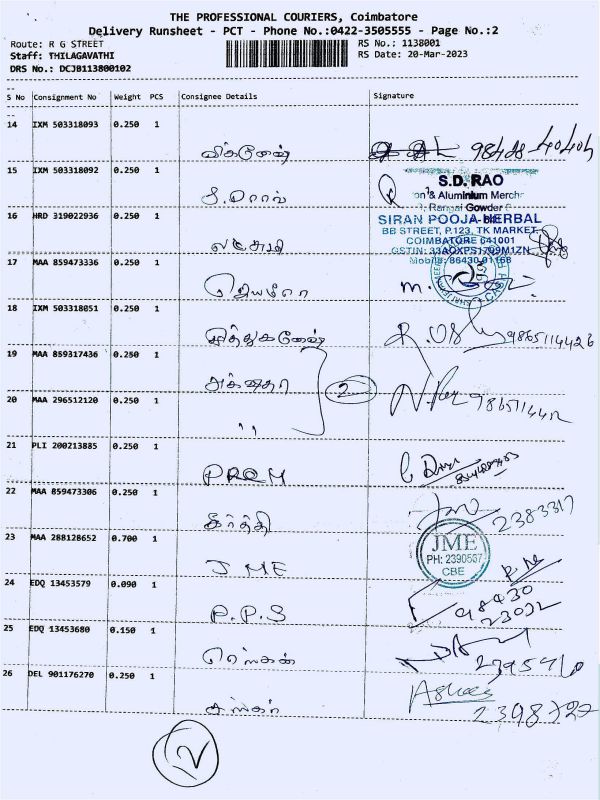 THE PROFESSIONAL COURIERS, Coimbatore
Delivery Runsheet - PCT - Phone No.:0422-3505555 - Page No.:2
Route: R G STREET
Staff: THILAGAVATHI
DRS No.: DCJB113800102
RS No.: 1138001
RS Date: 20-Mar-2023
S No Consignment No Weight PCS Consignee Details Signature
14 IXM 503318093 0.250 1
விக்னேஷ்
15 IXM 503318092 0.250 1
S.D. RAO
on & Aluminium Merch
Rangai Gowder
16 HRD 319022936 0.250 1
SIRAN POOJA HERBAL
BB STREET, P.123, TK MARKET,
COIMBATORE 641001
GSTIN: 33AOXPS1799M1ZN
Mobile: 86430 01168
17 MAA 859473336 0.250 1
ஜெயமீரா
18 IXM 503318051 0.250 1
முத்துகணேஷ் 9865114426
19 MAA 859317436 0.250 1
2
20 MAA 296512120 0.250 1
" 
21 PLI 200213885 0.250 1
PREM
22 MAA 859473306 0.250 1
கீர்த்தி 2383317
23 MAA 288128652 0.700 1
JME
JME
PH: 2390567
CBE
24 EDQ 13453579 0.090 1
P.P.S 98430
23012
25 EDQ 13453680 0.150 1
26 DEL 901176270 0.250 1
2398727
2